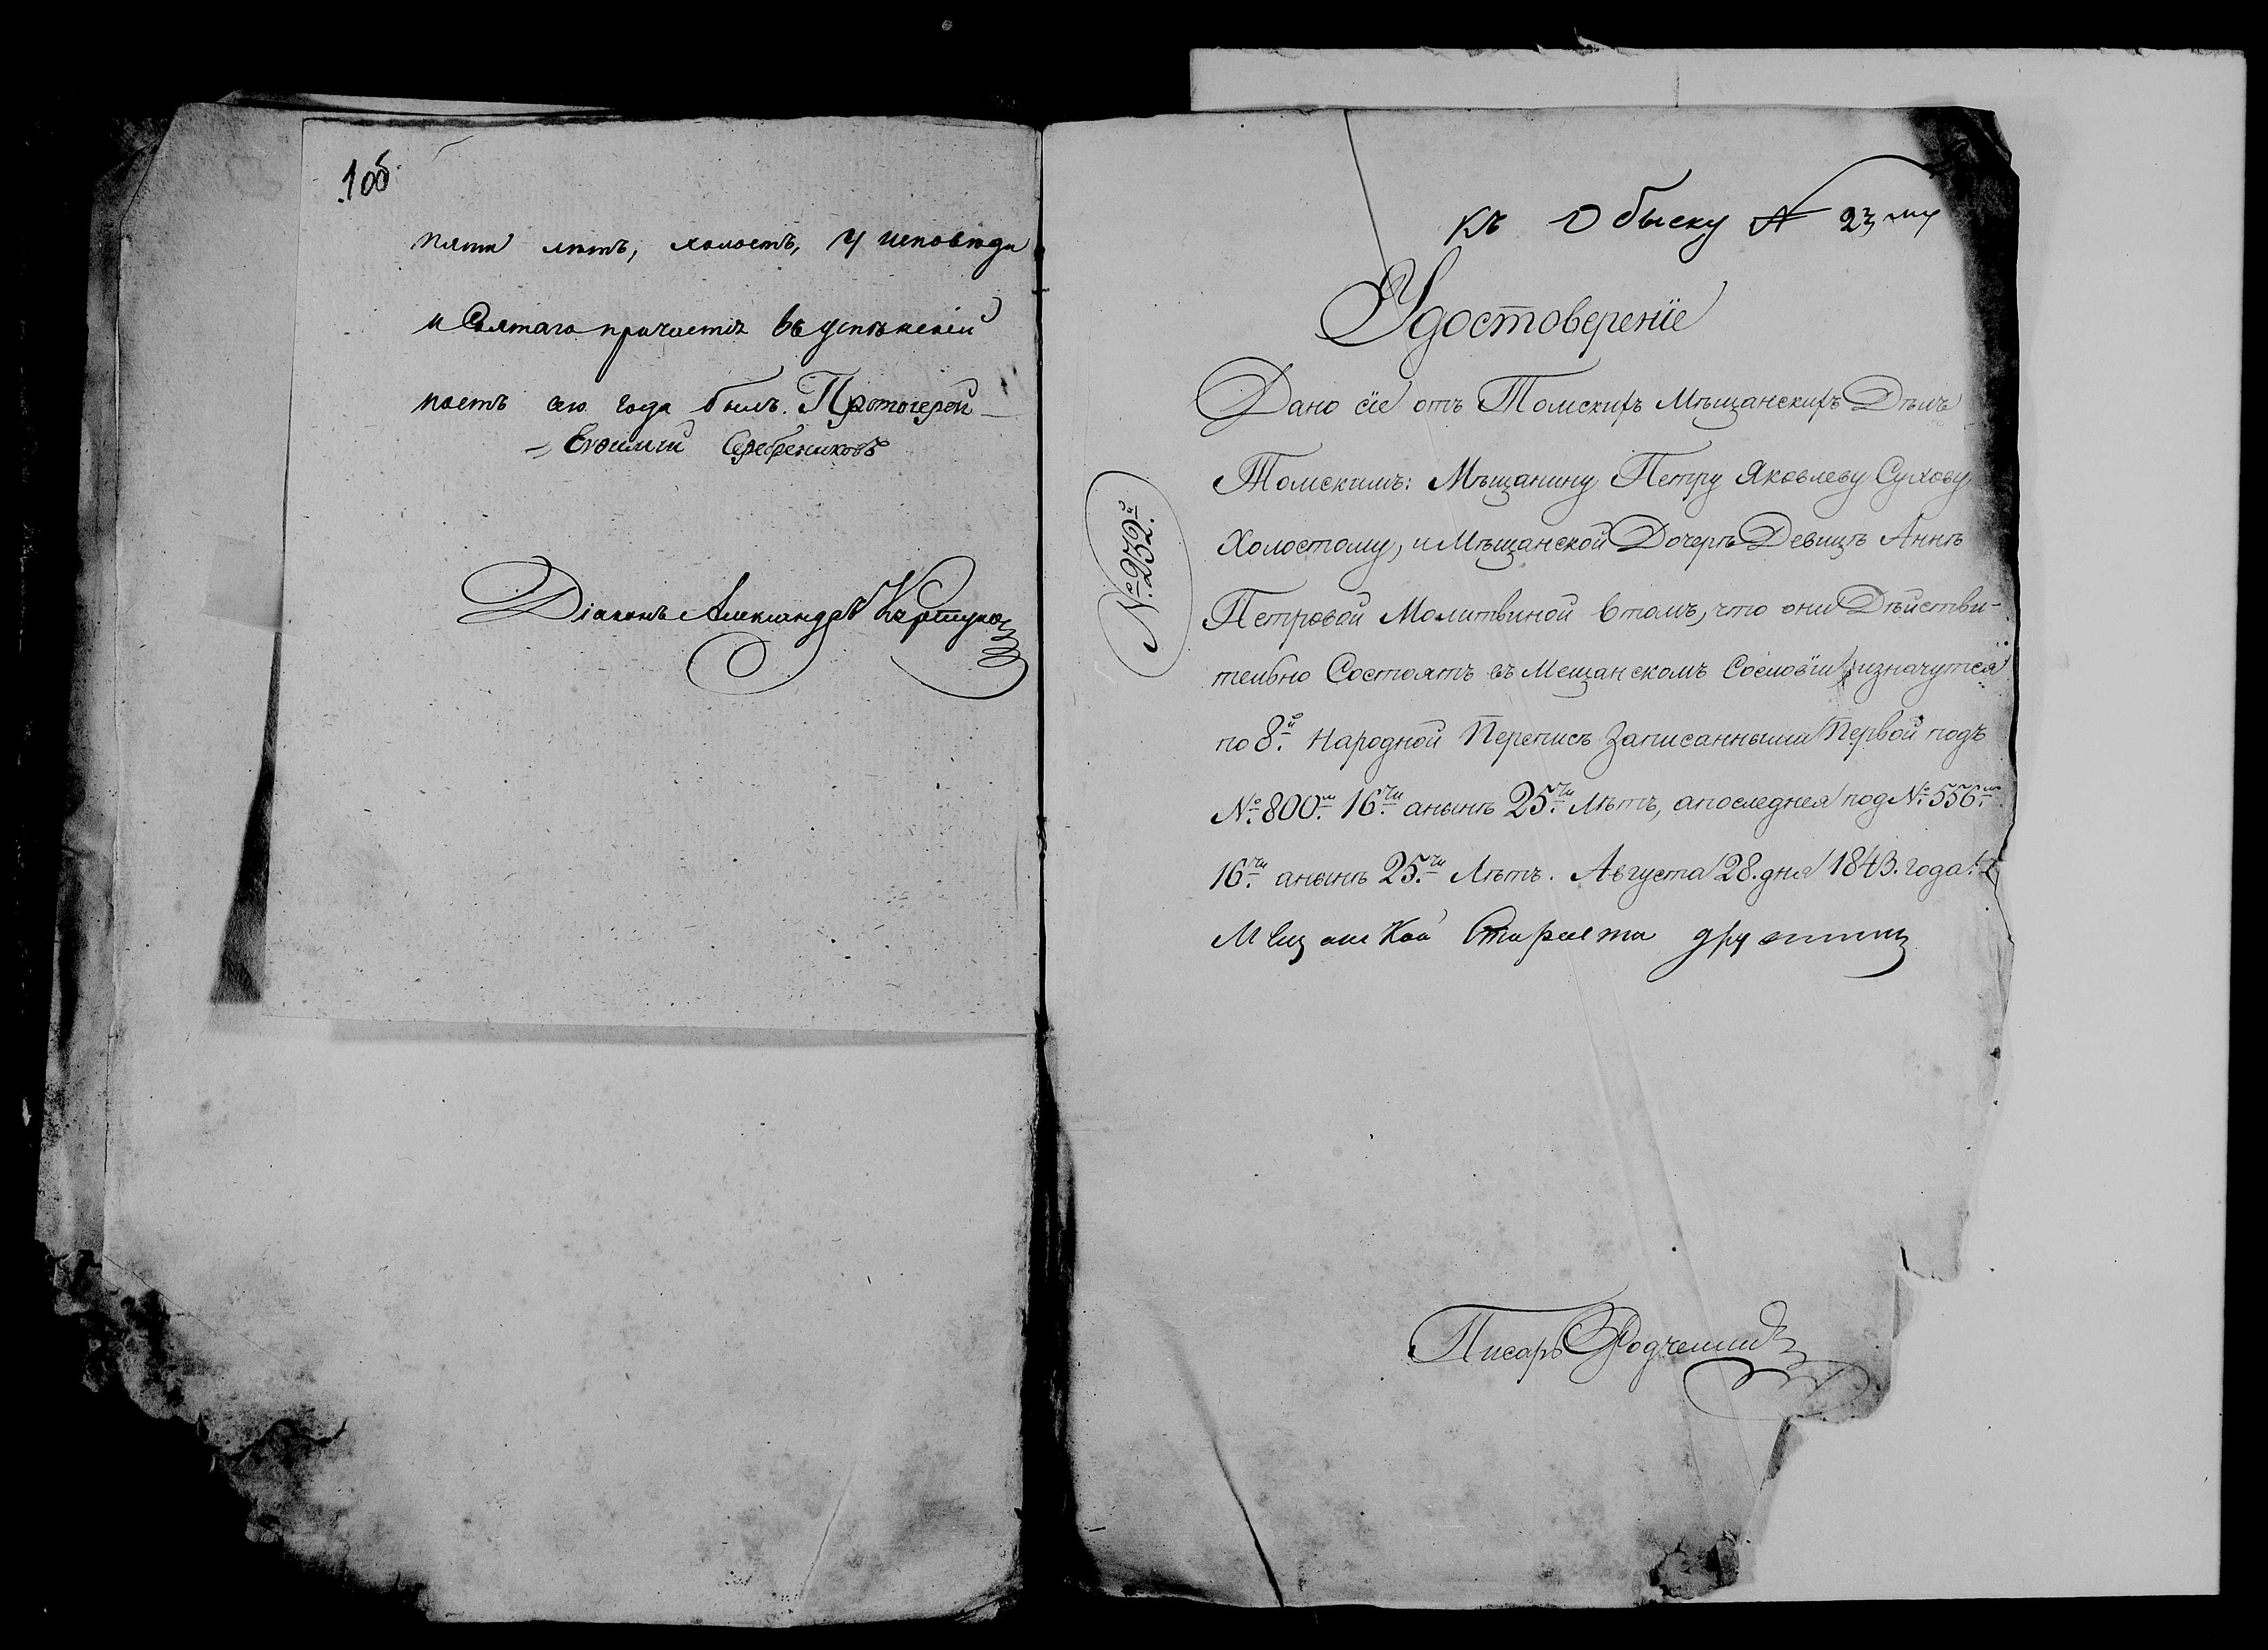 106
пяти летъ, холостъ, у исповѣди
и Святаго причастія въ успѣнскій
постъ сего года былъ. Протоіерей
Евѳимій Серебрениковъ
Діаконъ Александръ
Къ Обыску № 23му
Удостоверенїе
Дано сїе отъ Томскихъ Мѣщанскихъ Дѣлъ
Томскимъ: Мѣщанину Петру Яковлеву Сухову
Холостому, и Мѣщанской Дочерѣ Девицѣ Аннѣ
№ 952й
Петровой Молитвиной втомъ, что они Дѣйстви-
тельно Состоятъ въ Мещанскомъ Сословїи изначутся
по 8й Народной Переписѣ Записанными Первой подъ
№ 800м 16ти анынѣ 25ти Лѣтъ, апоследнея под № 556м
16ти анынѣ 25ти Лѣтъ. Августа 28. дня 1843. года.
Мещанской Староста
Писарь Родченинъ